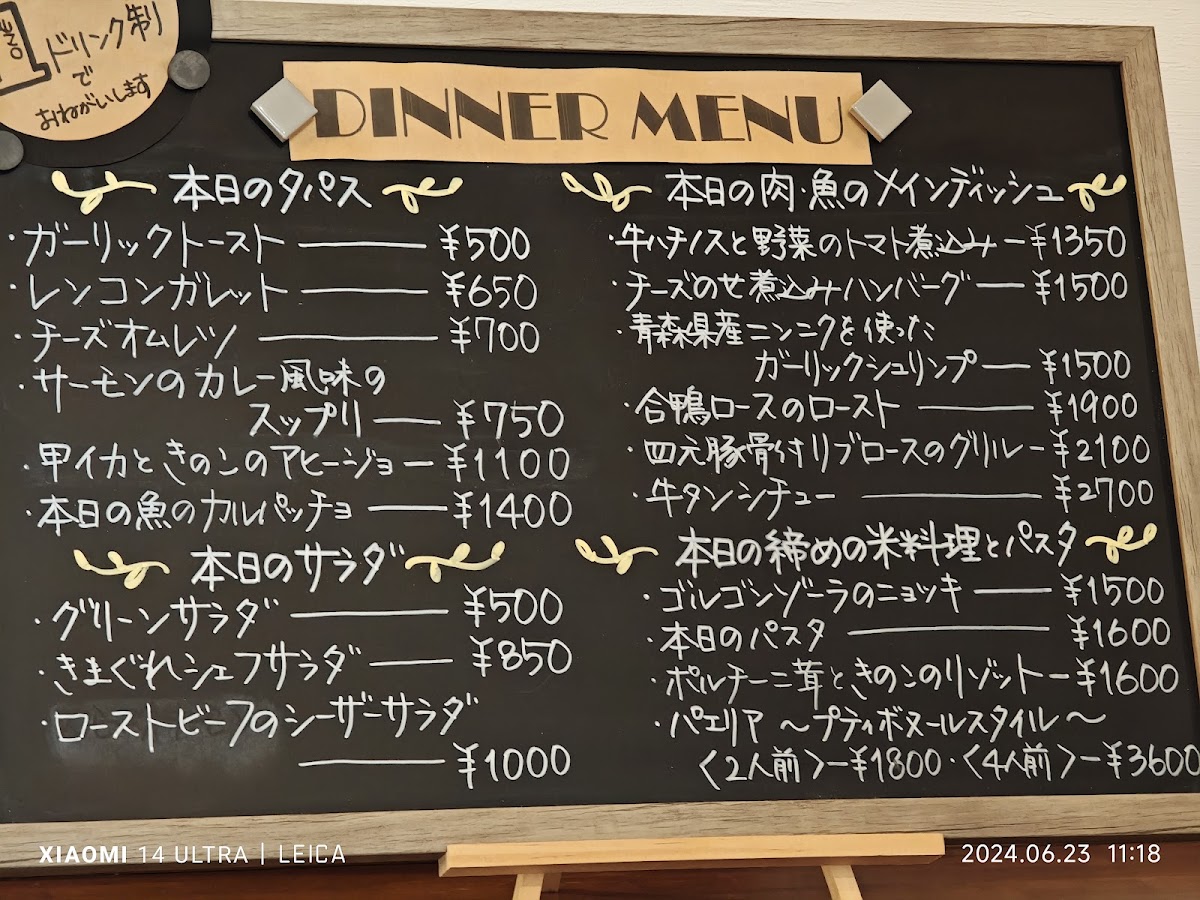 ドリンク制
で
おねがいします
DINNER MENU
本日のタパス
・ガーリックトースト ― ¥500
・レンコンガレット ― ¥650
・チーズオムレツ ― ¥700
・サーモンのカレー風味の
スップリ ― ¥750
・甲イカときのこのアヒージョ ― ¥1100
・本日の魚のカルパッチョ ― ¥1400
本日のサラダ
・グリーンサラダ ― ¥500
・きまぐれシェフサラダ ― ¥850
・ローストビーフのシーザーサラダ
― ¥1000
本日の肉・魚のメインディッシュ
・牛ハチノスと野菜のトマト煮込み ― ¥1350
・チーズのせ煮込みハンバーグ ― ¥1500
・青森県産ニンニクを使った
ガーリックシュリンプ ― ¥1500
・合鴨ロースのロースト ― ¥1900
・四元豚骨付リブロースのグリル ― ¥2100
・牛タンシチュー ― ¥2700
本日の締めの米料理とパスタ
・ゴルゴンゾーラのニョッキ ― ¥1500
・本日のパスタ ― ¥1600
・ポルチーニ茸ときのこのリゾット ― ¥1600
・パエリア 〜プティボヌールスタイル〜
〈2人前〉― ¥1800・〈4人前〉― ¥3600
XIAOMI 14 ULTRA | LEICA
2024.06.23 11:18